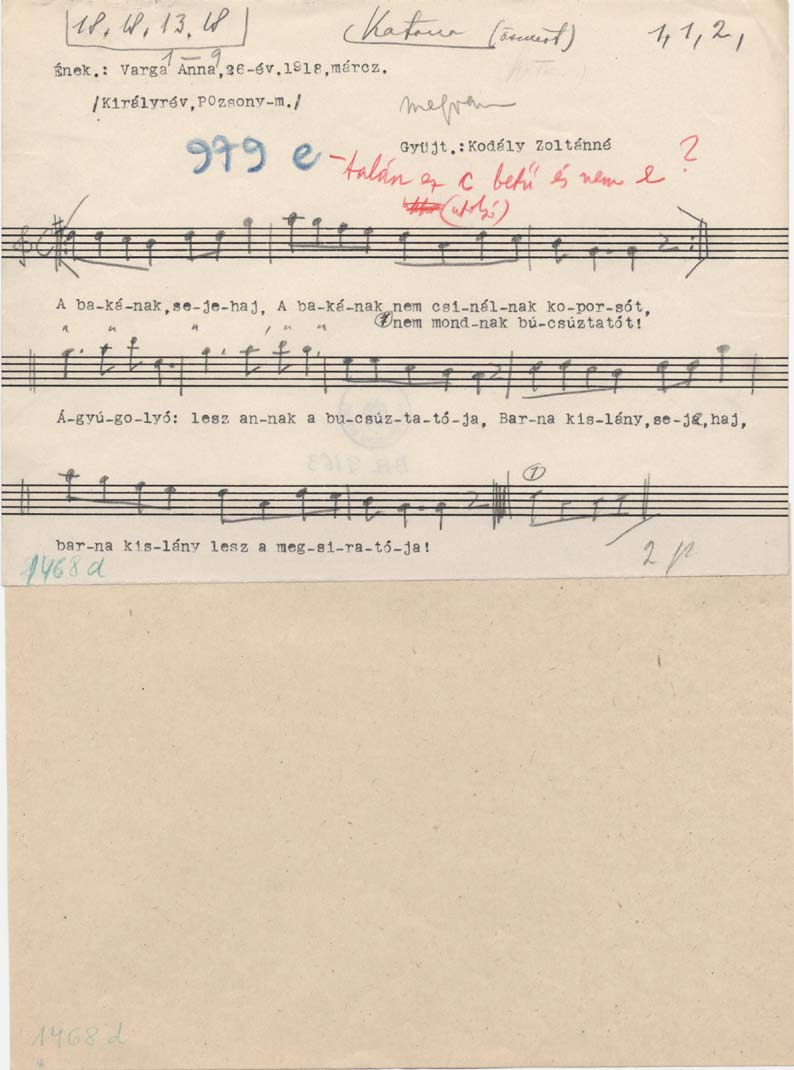 18, 18, 13, 18
Katona (ősmert)
1, 1, 2,
1–9
Ének.: Varga Anna,26-év.1918,márcz.
/Királyrév,POzsony-m./
megvan
Gyüjt.:Kodály Zoltánné
979 e
– talán ez c betű és nem e ?
(utolsó)
A ba-ká-nak,se-je-haj, A ba-ká-nak nem csi-nál-nak ko-por-sót,
① nem mond-nak bú-csúztatót!
Á-gyú-go-lyó: lesz an-nak a bu-csúz-ta-tó-ja, Bar-na kis-lány,se-já,haj,
①
bar-na kis-lány lesz a meg-si-ra-tó-ja!
1468 d
2 p
1468 d